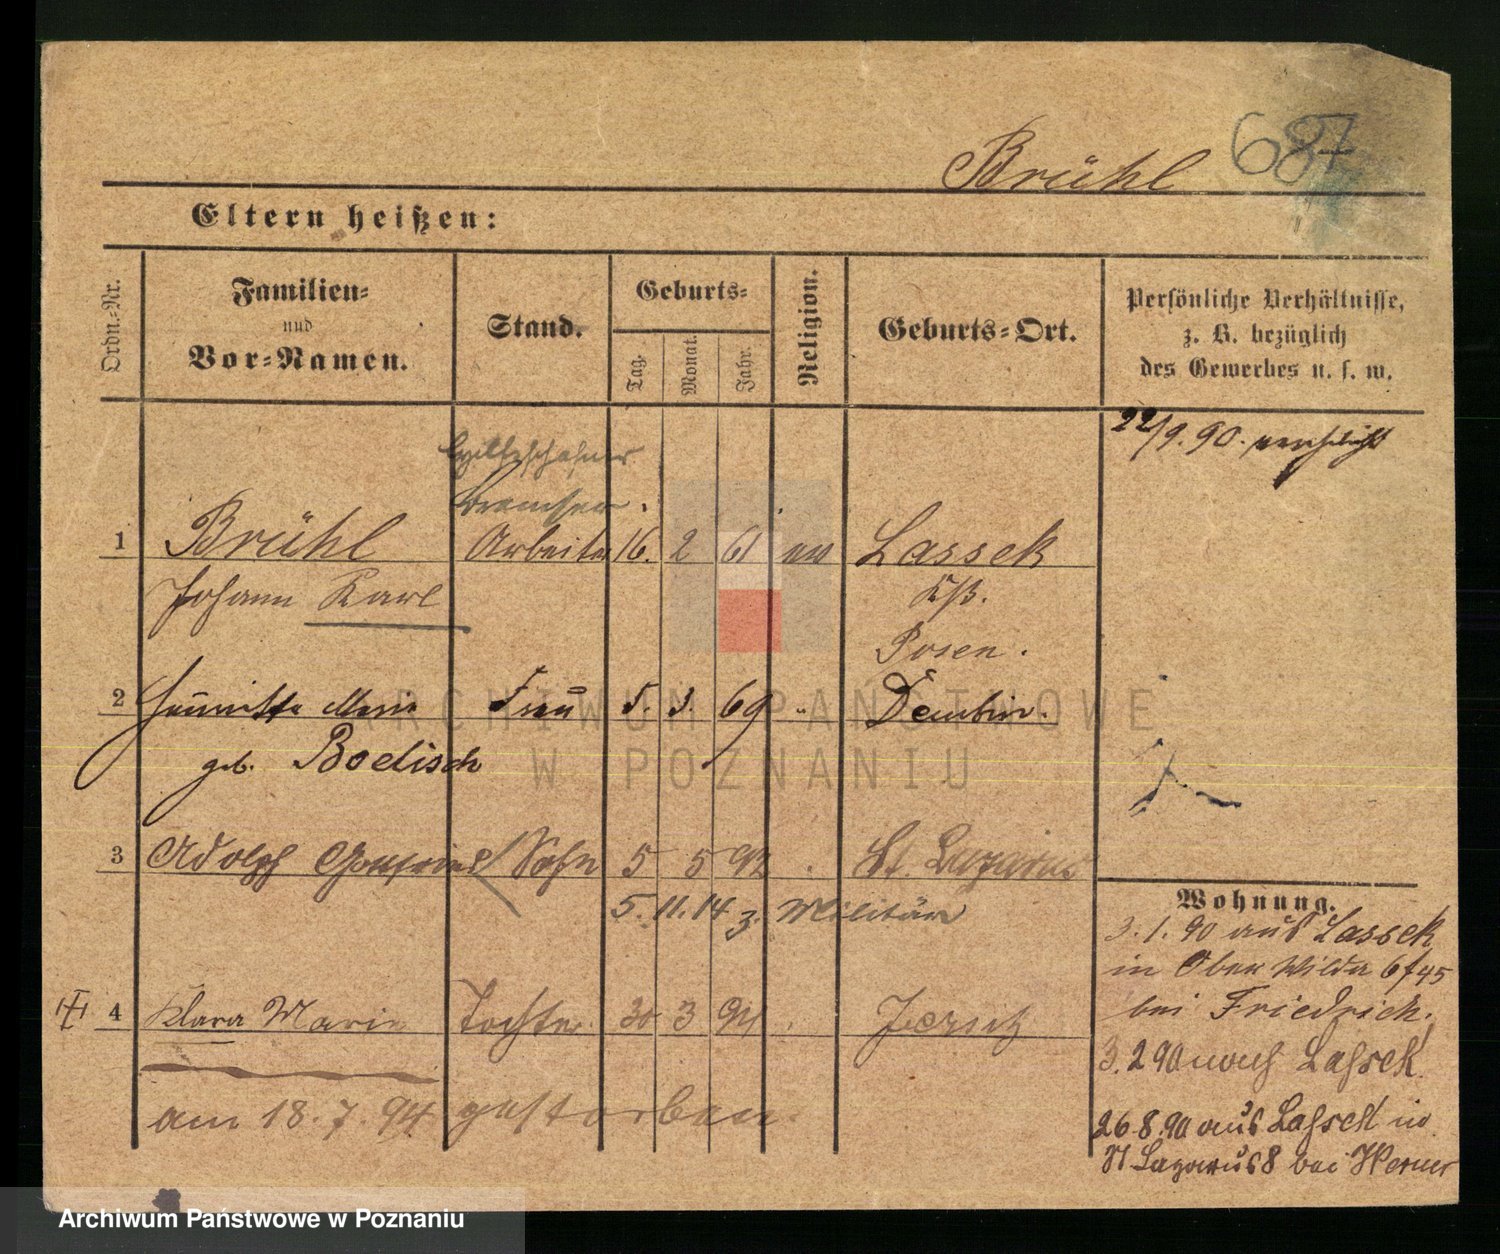 Brühl 687
Eltern heißen:
Ordn.-Nr.
Familien-
und
Vor-Namen.
Stand.
Geburts-
Tag.
Monat.
Jahr.
Religion.
Geburts-Ort.
Persönliche Verhältnisse,
z. B. bezüglich
des Gewerbes u. s. w.
22/9. 90. verehelicht
Bremser.
1 Brühl Arbeiter 16. 2 61 ev Lassek
Johann Karl Kß.
Posen.
2 Henriette Marie Frau 5. 3. 69 " Dembsen.
geb. Boelisch
3 Adolph Gottfried Sohn 5 5 92 . St. Lazarus
5. 11. 14 z. Militär
4 Klara Marie Tochter 30 3 94 . Jerzitz
am 18. 7. 94 gestorben.
Wohnung.
3. 1. 90 aus Lassek
in Ober Wilda 6/45
bei Friedrich.
3. 2 90 nach Laßek
26. 8. 90 aus Laßek in
St Lazarus 8 bei Werner
ARCHIWUM PAŃSTWOWE
W POZNANIU
Archiwum Państwowe w Poznaniu